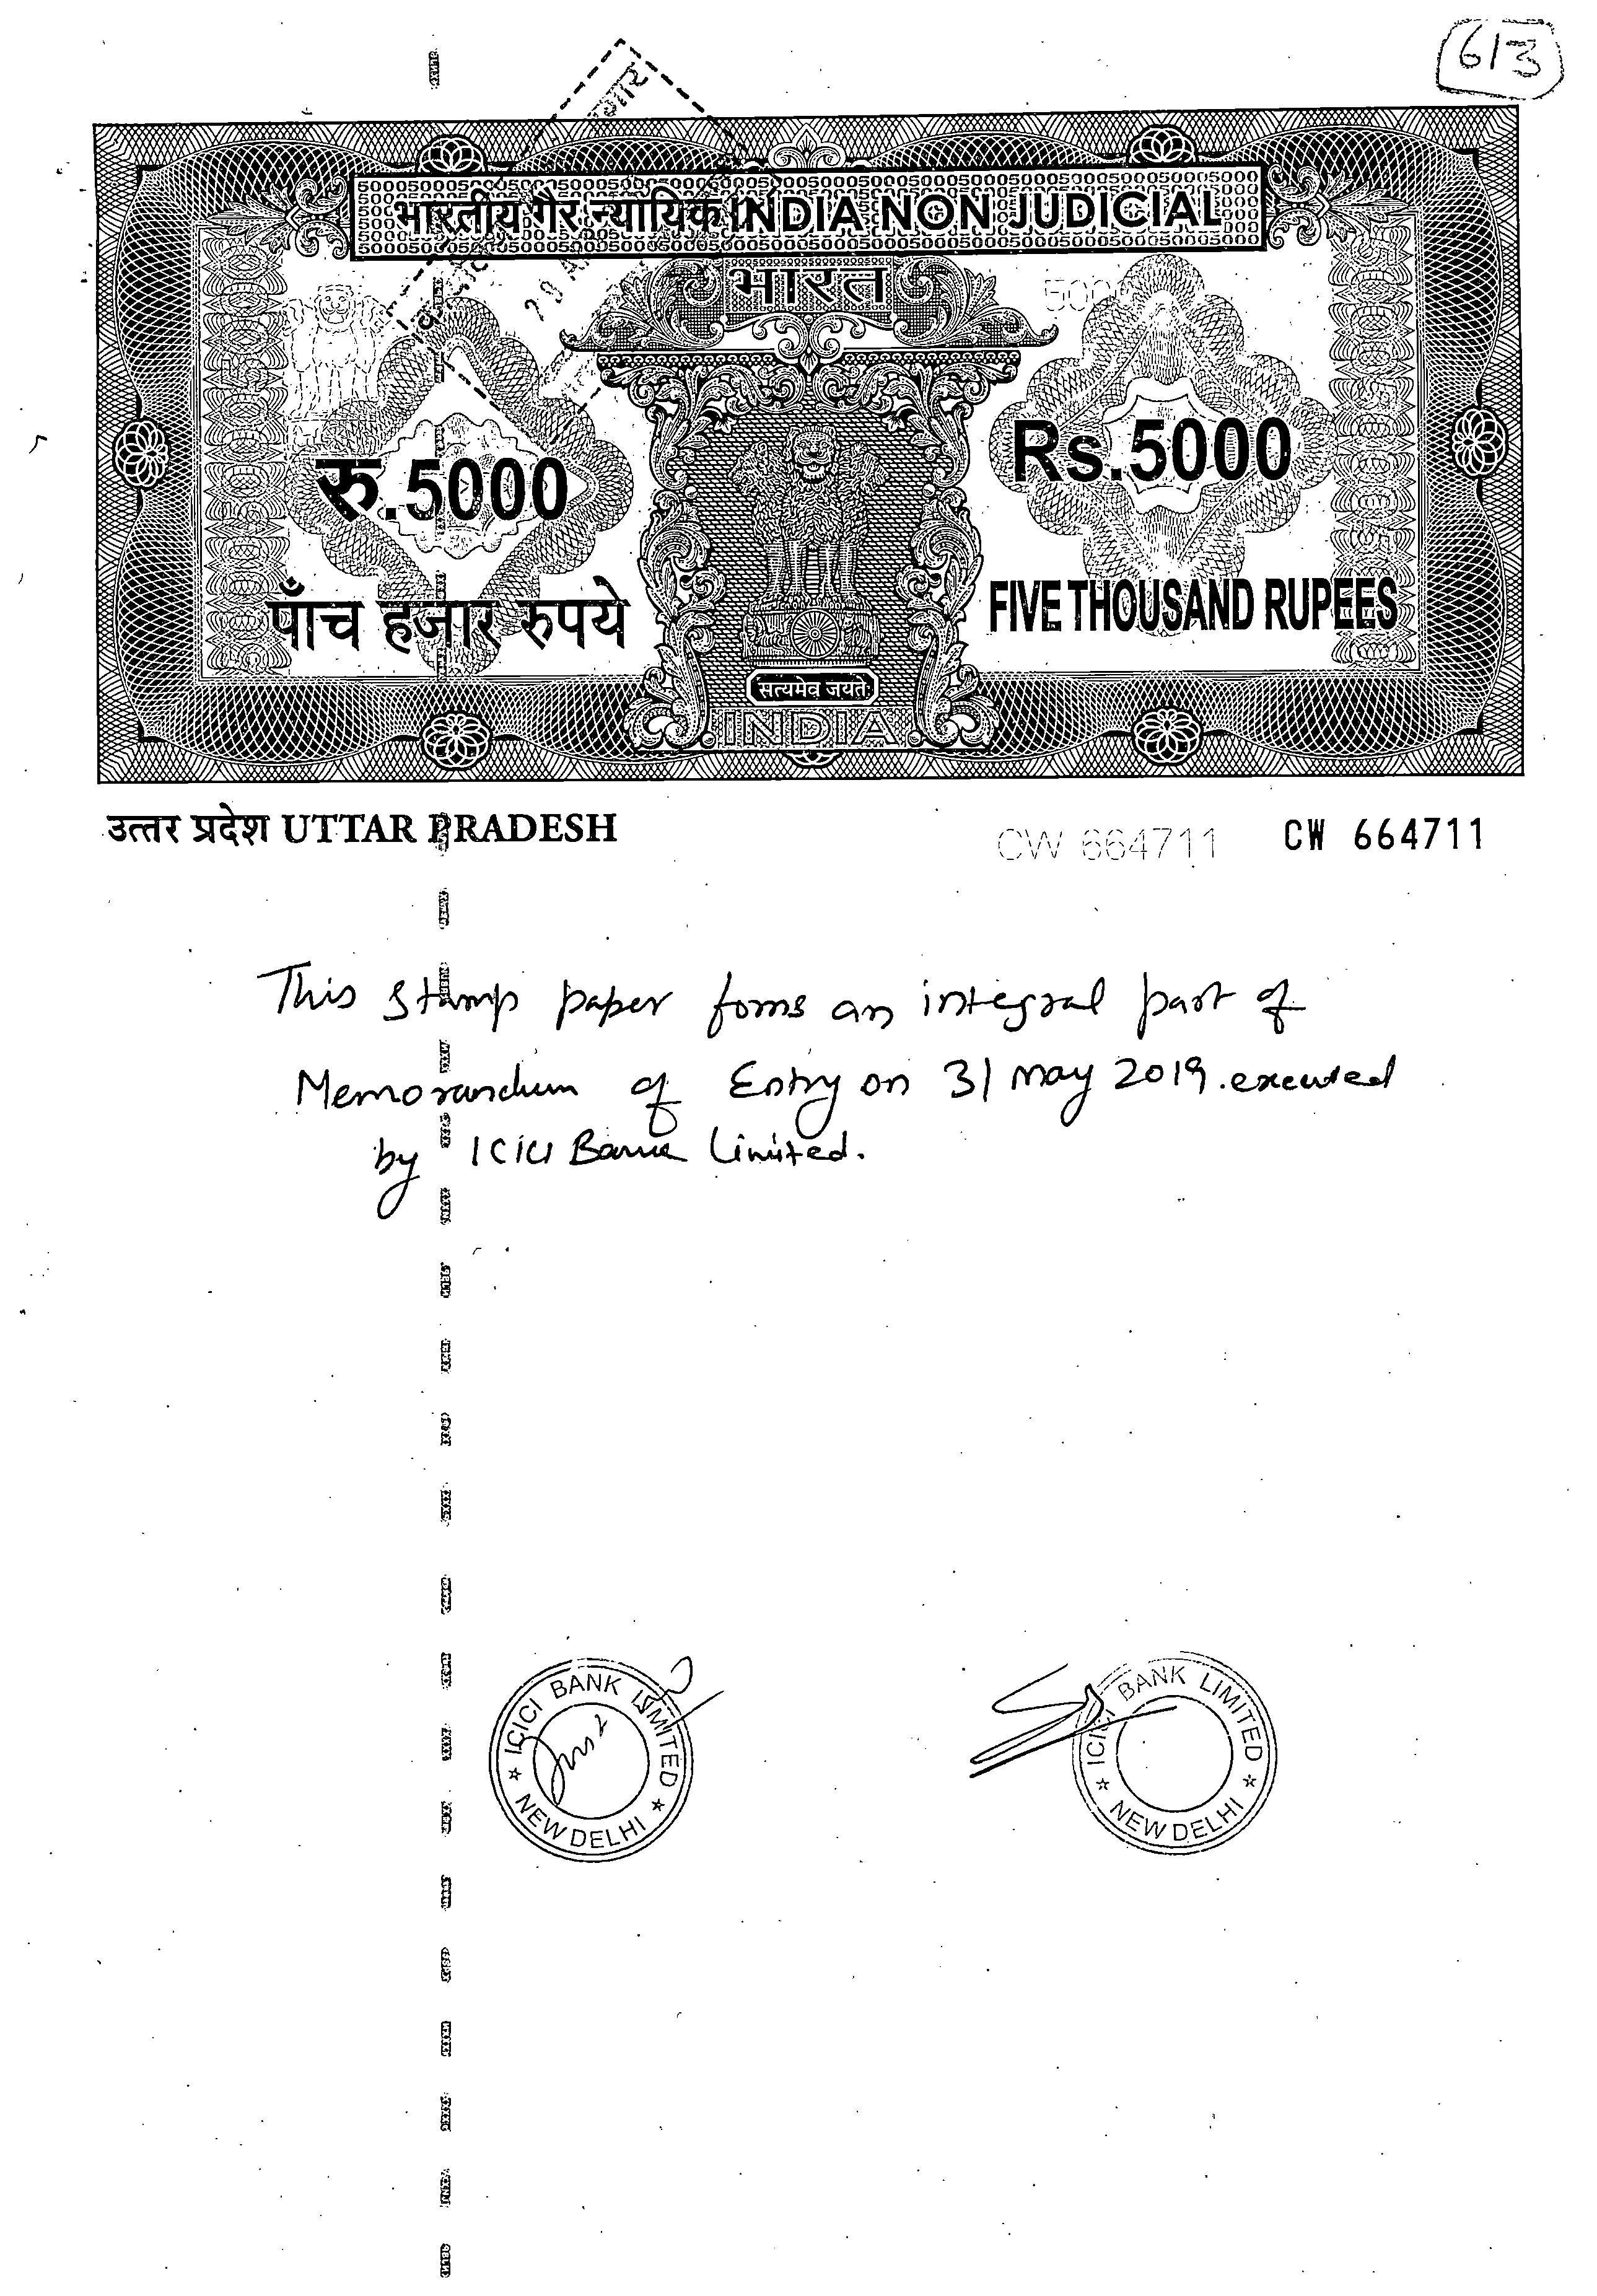 613
भारतीय गैर न्यायिक INDIA NON JUDICIAL
भारत
5000
रु.5000
Rs.5000
पाँच हजार रुपये
FIVE THOUSAND RUPEES
सत्यमेव जयते
INDIA
उत्तर प्रदेश UTTAR PRADESH
CW 664711 CW 664711
This stamp paper forms an integral part of
Memorandum of Entry on 31 May 2019. executed
by ICICI Bank Limited.
ICICI BANK LIMITED
NEW DELHI
ICICI BANK LIMITED
NEW DELHI